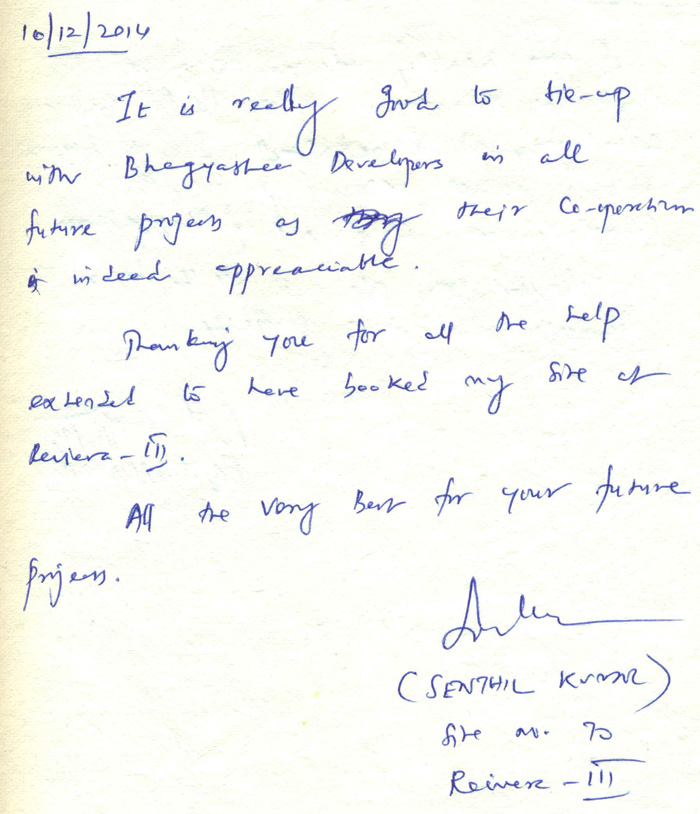 10/12/2014
It is really good to tie-up
with Bhagyashee Developers in all
future projects as their Co-operation
is indeed appreaciable.
Thanking you for all the help
extended to have booked my site at
Reviera - III.
All the very Best for your future
projects.
(SENTHIL KUMAR)
Site no. 70
Reivera - III